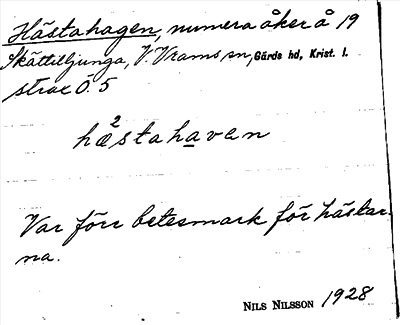 Hästahagen, numera åker å 19
Skättilljunga, V. Vrams sn, Gärds hd, Krist. l.
strax Ö. 5
hæ²stahaven
Var förr betesmark för hästar-
na.
NILS NILSSON 1928